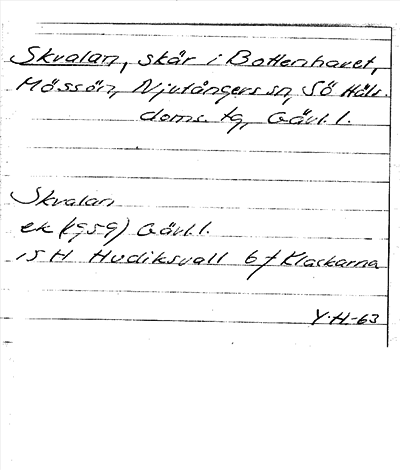 Skvalan, skär i Bottenhavet,
Mössön, Njutångers sn, Sö Häls.
doms. tg, Gävl. l.
Skvalan
ek (1959) Gävl. l.
15 H Hudiksvall 6 f Klackarna
Y.H.-63